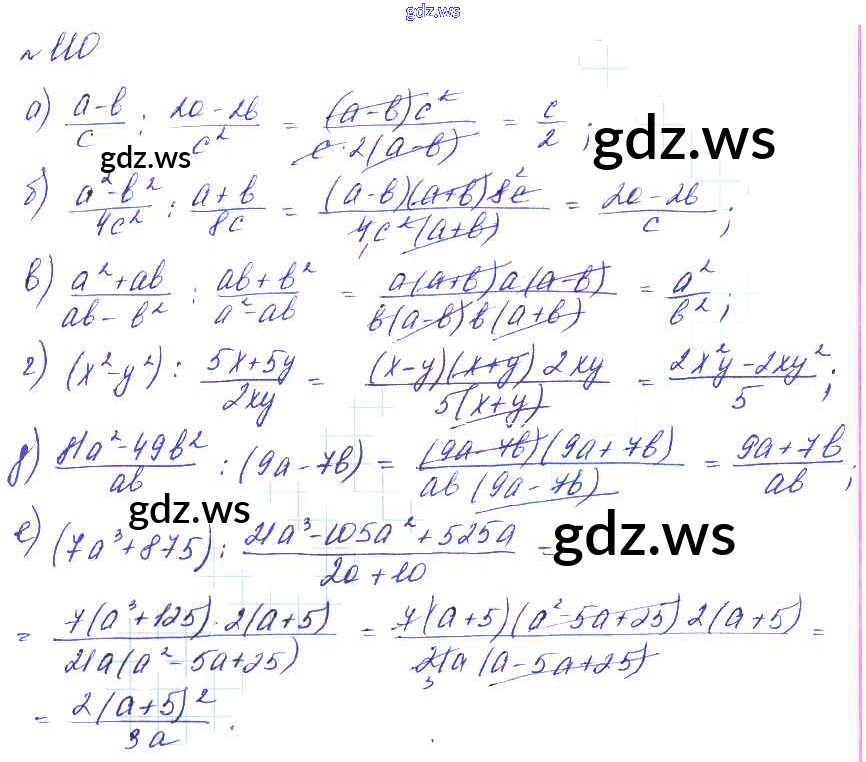 gdz.ws
№110
а) (a-b)/c : (2a-2b)/c² = ((a-b)c²)/(c·2(a-b)) = c/2 ;
gdz.ws gdz.ws
б) (a²-b²)/(4c²) : (a+b)/(8c) = ((a-b)(a+b)8c)/(4c²(a+b)) = (2a-2b)/c ;
в) (a²+ab)/(ab-b²) : (ab+b²)/(a²-ab) = (a(a+b)a(a-b))/(b(a-b)b(a+b)) = a²/b² ;
г) (x²-y²) : (5x+5y)/(2xy) = ((x-y)(x+y)2xy)/(5(x+y)) = (2x²y-2xy²)/5 ;
д) (81a²-49b²)/(ab) : (9a-7b) = ((9a-7b)(9a+7b))/(ab(9a-7b)) = (9a+7b)/(ab) ;
gdz.ws gdz.ws
е) (7a³+875) : (21a³-105a²+525a)/(2a+10) =
= (7(a³+125)·2(a+5))/(21a(a²-5a+25)) = (7(a+5)(a²-5a+25)2(a+5))/(21a(a-5a+25)) =
= (2(a+5)²)/(3a) .